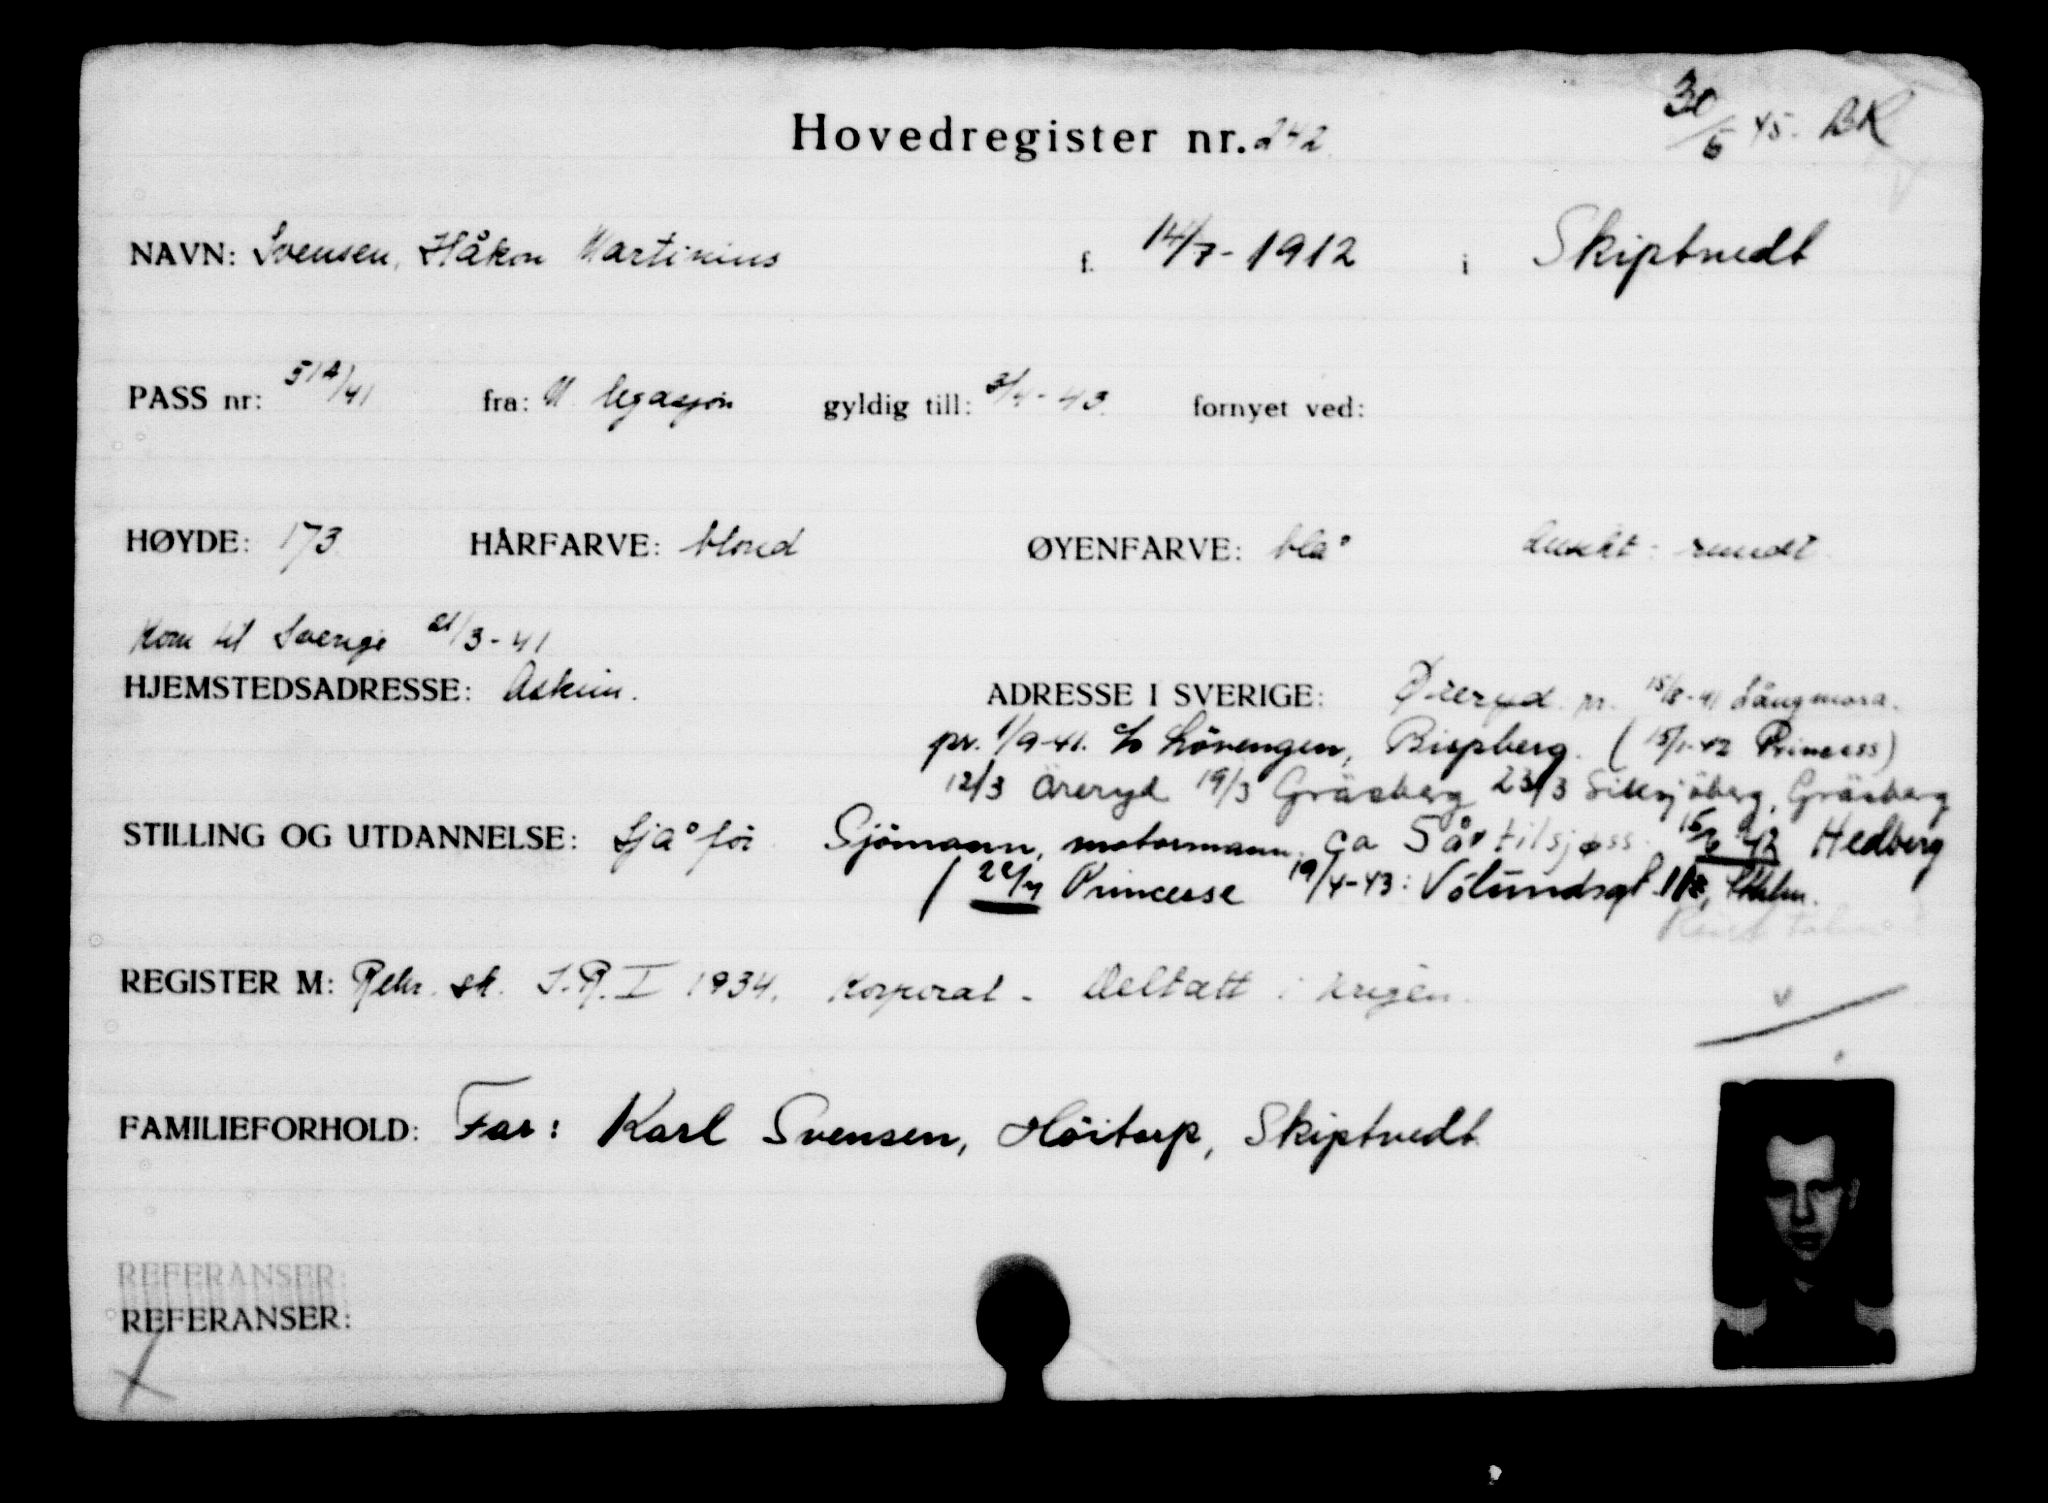 30/6 45. BK
Hovedregister nr. 242
NAVN: Svensen, Håkon Martinius f. 14/7-1912 i Skiptvedt
PASS nr: 512/41 fra: N legasjon gyldig till: 3/4-43. fornyet ved:
HØYDE: 173 HÅRFARVE: blond ØYENFARVE: blå Ansikt: rundt.
Kom til Sverige 21/3-41
HJEMSTEDSADRESSE: Askim. ADRESSE I SVERIGE: Øreryd. pr. 15/8-41 Långmora.
pr. 1/9-41. Lövengen, Bispberg. (15/1-42 Princess)
12/3 Öreryd 19/3 Gräsberg 23/3 Siksjöberg, Gräsberg
STILLING OG UTDANNELSE: Sjåför. Sjömann, motormann, ca 5 år tilsjøss. 15/6 42 Hedberg
/ 22/7 Princesse 19/4-43: Völundsgt. Sthlm.
REGISTER M: Rekr. sk. I.R. I 1934. Korporal - Deltatt i krigen.
FAMILIEFORHOLD: Far: Karl Svensen, Höitorp, Skiptvedt.
REFERANSER:
REFERANSER: